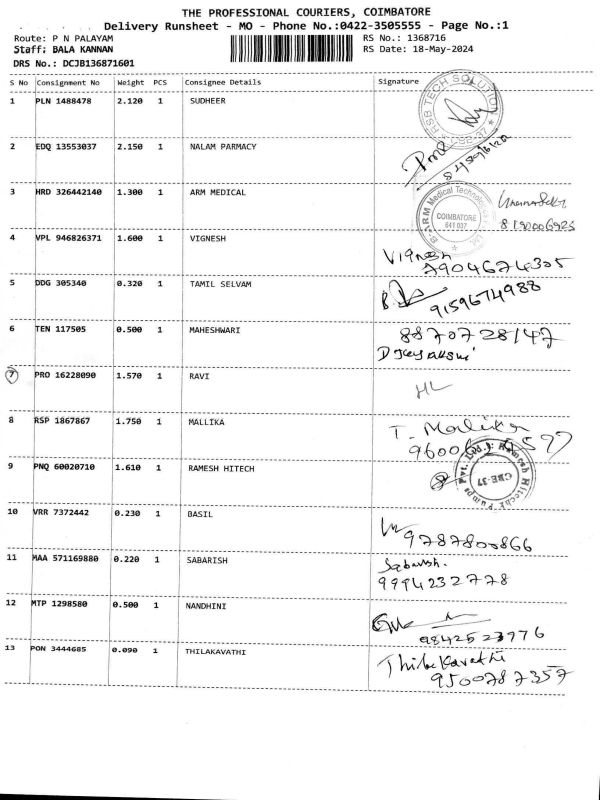 THE PROFESSIONAL COURIERS, COIMBATORE
Delivery Runsheet - MO - Phone No.:0422-3505555 - Page No.:1
Route: P N PALAYAM
RS No.: 1368716
Staff: BALA KANNAN
RS Date: 18-May-2024
DRS No.: DCJB136871601
S No Consignment No Weight PCS Consignee Details Signature
1 PLN 1488478 2.120 1 SUDHEER
HSB TECH SOLUTION
CBE-37
2 EDQ 13553037 2.150 1 NALAM PARMACY
3 HRD 326442140 1.300 1 ARM MEDICAL
COIMBATORE
641 037
4 VPL 946826371 1.600 1 VIGNESH
Vignesh
7904674305
5 DDG 305340 0.320 1 TAMIL SELVAM
9159674988
6 TEN 117505 0.500 1 MAHESHWARI
8870728147
7 PRO 16228090 1.570 1 RAVI
8 RSP 1867867 1.750 1 MALLIKA
T. Mallika
9 PNQ 60020710 1.610 1 RAMESH HITECH
CBE-37
10 VRR 7372442 0.230 1 BASIL
9787800866
11 MAA 571169880 0.220 1 SABARISH
Sabarish.
9994232778
12 MTP 1298580 0.500 1 NANDHINI
9842523776
13 PON 3444685 0.090 1 THILAKAVATHI
Thilakavathi
9500787357